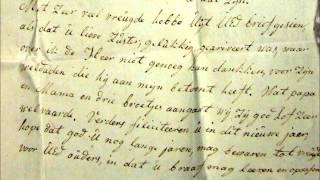 Met zeer veel vreugde hebbe Uit UEd brief gesien,
als dat u lieve Zuster, gelukkig gearriveert was, waar
over ik de Heer niet genoeg kan dankken, voor Zijn
weldaden die hij aan mijn betoont heeft. Wat papa
en Mama en drie broetjes aangaat wij Zij god lof Zeer
welvaarde. Verders feliciteeren u in dit nieuwe jaer,
hope dat god u nog lange jaren, mag bewaren tot
voor UEd ouders, in dat u braaf mag Leeren en